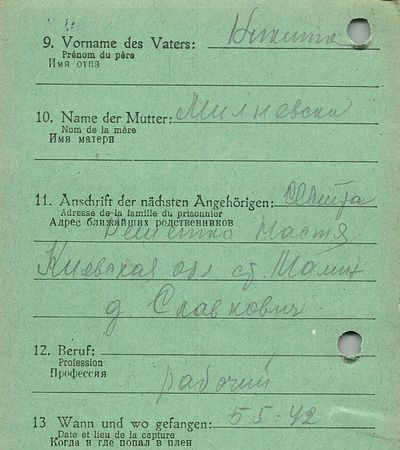 9. Vorname des Vaters: Никита
Prénom du père
Имя отца
10. Name der Mutter: Милневска
Nom de la mère
Имя матери
11. Anschrift der nächsten Angehörigen: сестра
Adresse de la famille du prisonnier
Адрес ближайших родственников
Настя
Киевская обл ст. Малин
д. Славкович
12. Beruf:
Profession
Профессия
рабочий
13 Wann und wo gefangen: 5 5. 42
Date et lieu de la capture
Когда и где попал в плен